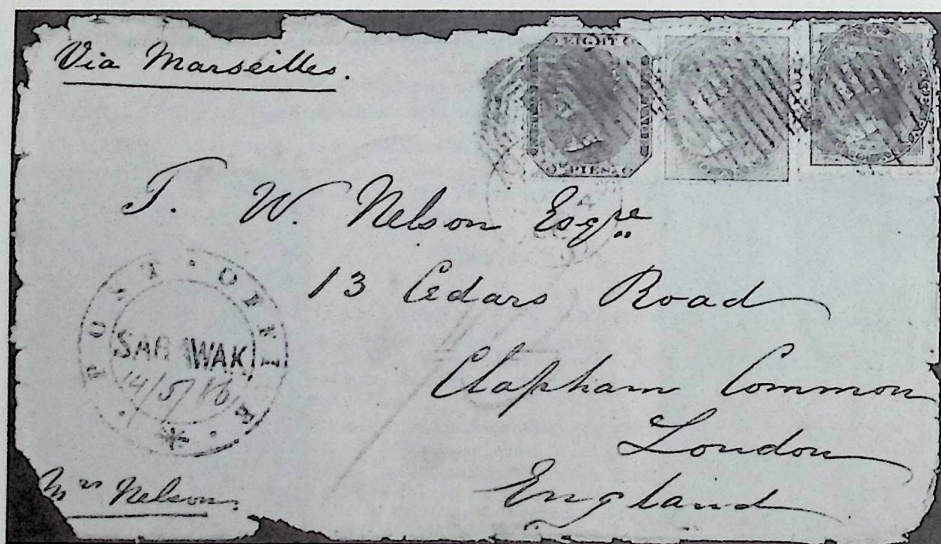 Via Marseilles.
EIGHT
PIES
T. W. Nelson Esqre
13 Cedars Road
Clapham Common
London
England
POST OFFICE
SARAWAK
Mrs Nelson.